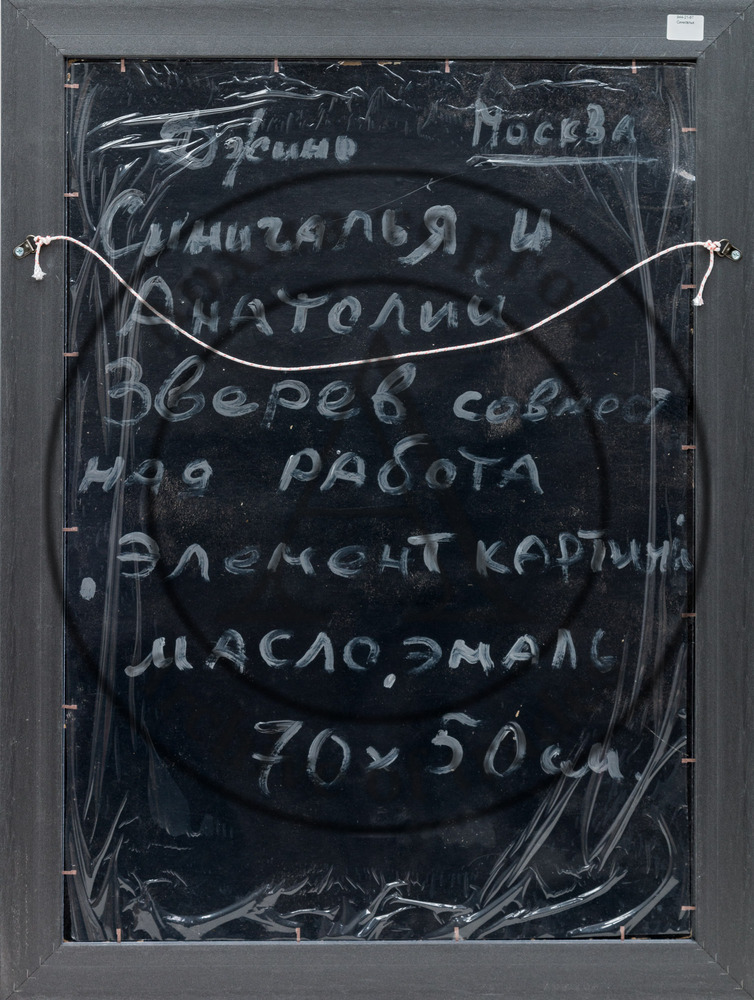 Джино Москва
Синигалья и
Анатолий
Зверев совмест
ная работа
Элемент картины
масло, эмаль
70х50 см.